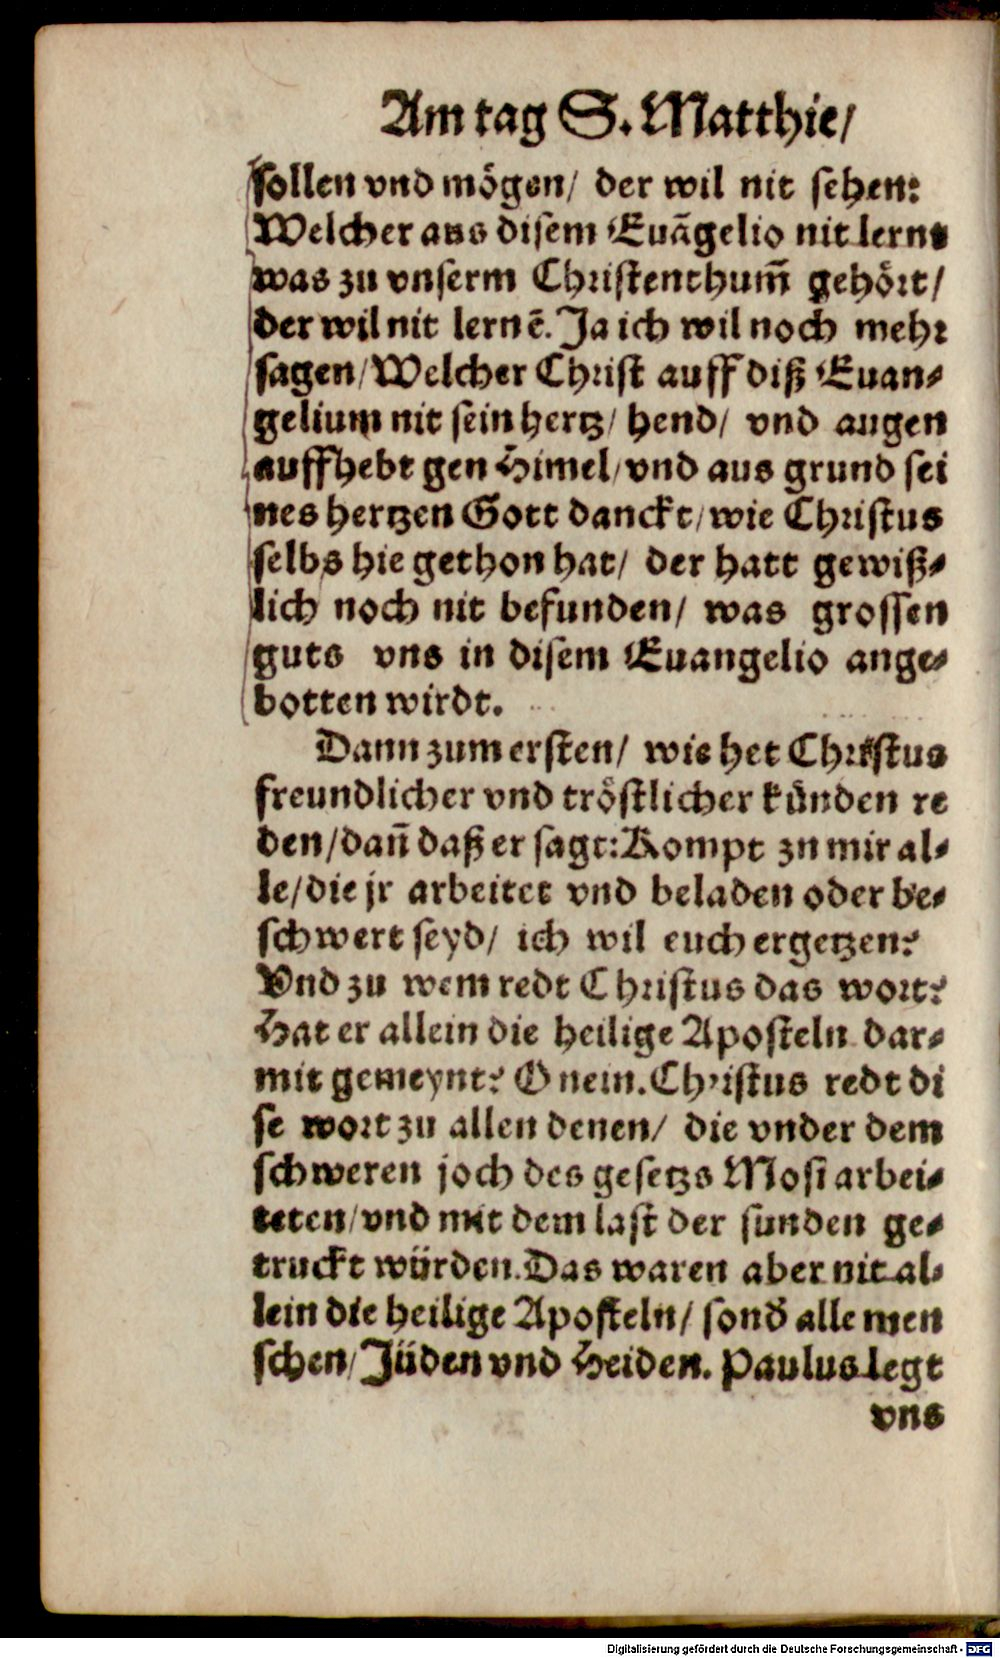 Am tag S. Matthie/
sollen vnd mögen/ der wil nit sehen:
Welcher aus disem Euāgelio nit lernt
was zu vnserm Christenthum̃ gehört/
der wil nit lernē. Ja ich wil noch mehr
sagen/ Welcher Christ auff diß Euan-
gelium nit sein hertz/ hend/ vnd augen
auffhebt gen Himel/ vnd aus grund sei
nes hertzen Gott danckt/ wie Christus
selbs hie gethon hat/ der hatt gewiß-
lich noch nit befunden/ was grossen
guts vns in disem Euangelio ange-
botten wirdt.
Dann zum ersten/ wie het Christus
freundlicher vnd tröstlicher künden re
den/ dañ daß er sagt: Kompt zu mir al-
le/ die jr arbeitet vnd beladen oder be-
schwert seyd/ ich wil euch ergetzen?
Vnd zu wem redt Christus das wort?
Hat er allein die heilige Aposteln dar-
mit gemeynt? O nein. Christus redt di
se wort zu allen denen/ die vnder dem
schweren joch des gesetzs Mosi arbei-
teten/ vnd mit dem last der sunden ge-
truckt würden. Das waren aber nit al-
lein die heilige Aposteln/ sond̄ alle men
schen/ Jüden vnd Heiden. Paulus legt
vns
Digitalisierung gefördert durch die Deutsche Forschungsgemeinschaft - DFG